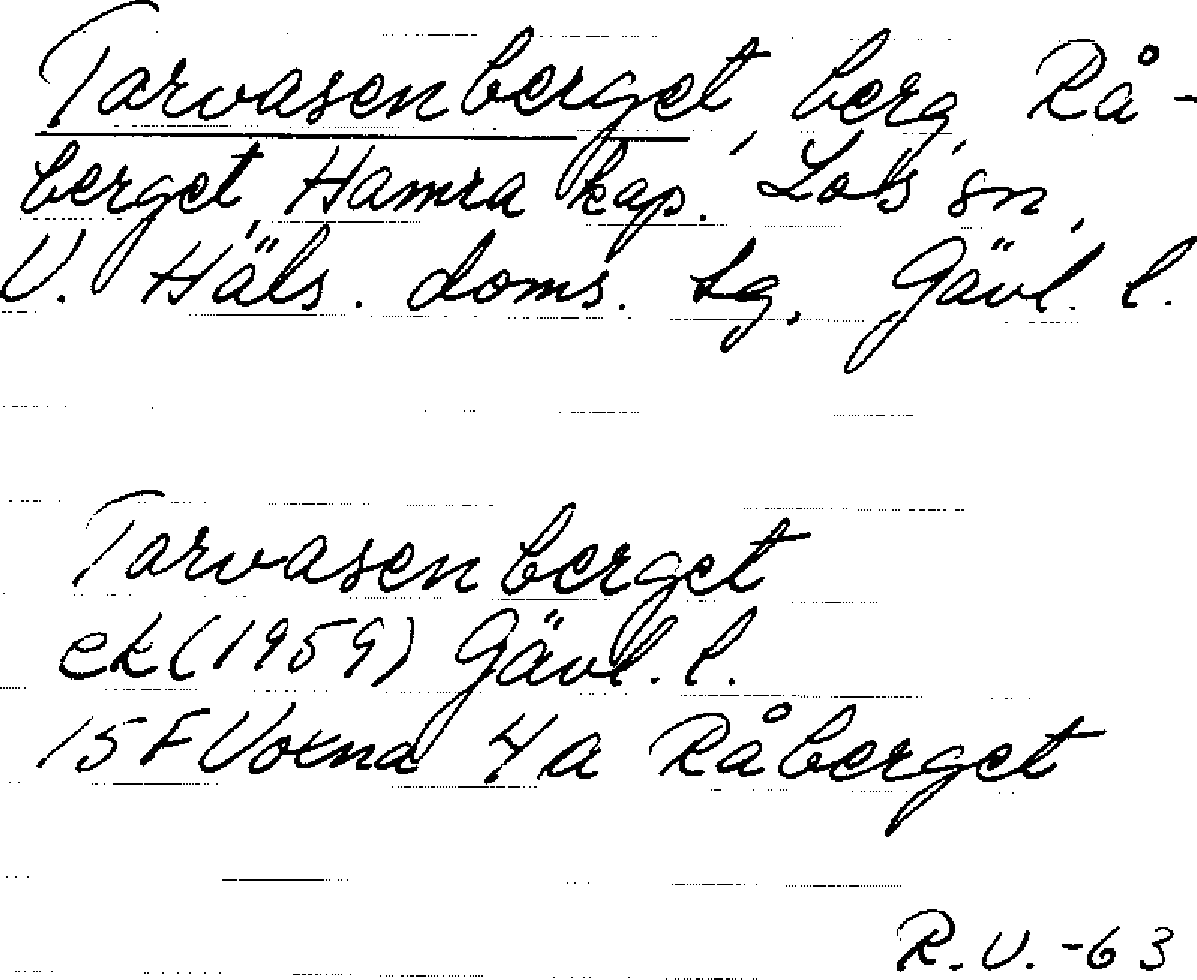 Tarvasenberget, berg, Rå-
berget, Hamra kap. Los sn,
V. Häls. doms. tg, Gävl. l.
Tarvasenberget
ek (1959) Gävl. l.
15F Voxna 4a Råberget
R.V. -63